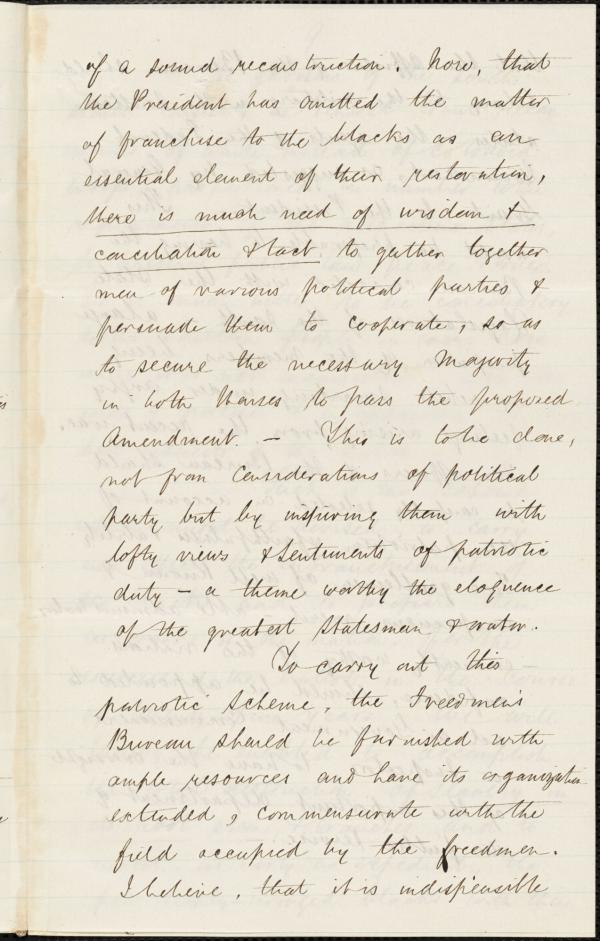 of a sound reconstruction. Now, that
the President has omitted the matter
of franchise to the blacks as an
essential element of their restoration,
there is much need of wisdom &
conciliation & tact to gather together
men of various political parties &
persuade them to cooperate, so as
to secure the necessary Majority
in both Houses to pass the proposed
Amendment. — This is to be done,
not from considerations of political
party but by inspiring them with
lofty views & sentiments of patriotic
duty — a theme worthy the eloquence
of the greatest statesman & orator.
To carry out this
patriotic scheme, the Freedmen's
Bureau should be furnished with
ample resources and have its organization
extended, commensurate with the
field occupied by the freedmen.
I believe, that it is indispensible